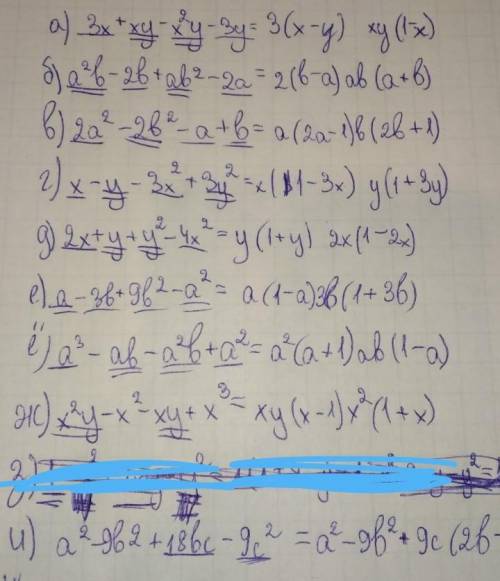 а) 3x + xy - x²y - 3y = 3(x-y) xy(1-x)
б) a²b - 2b + ab² - 2a = 2(b-a) ab(a+b)
в) 2a² - 2b² - a + b = a(2a-1)b(2b+1)
г) x - y - 3x² + 3y² = x(1-3x) y(1+3y)
д) 2x + y + y² - 4x² = y(1+y) 2x(1-2x)
е) a - 3b + 9b² - a² = a(1-a)3b(1+3b)
ё) a³ - ab - a²b + a² = a²(a+1)ab(1-a)
ж) x²y - x² - xy + x³ = xy(x-1)x²(1+x)
з)
и) a² - 9b2 + 18bc - 9c² = a² - 9b² + 9c(2b-